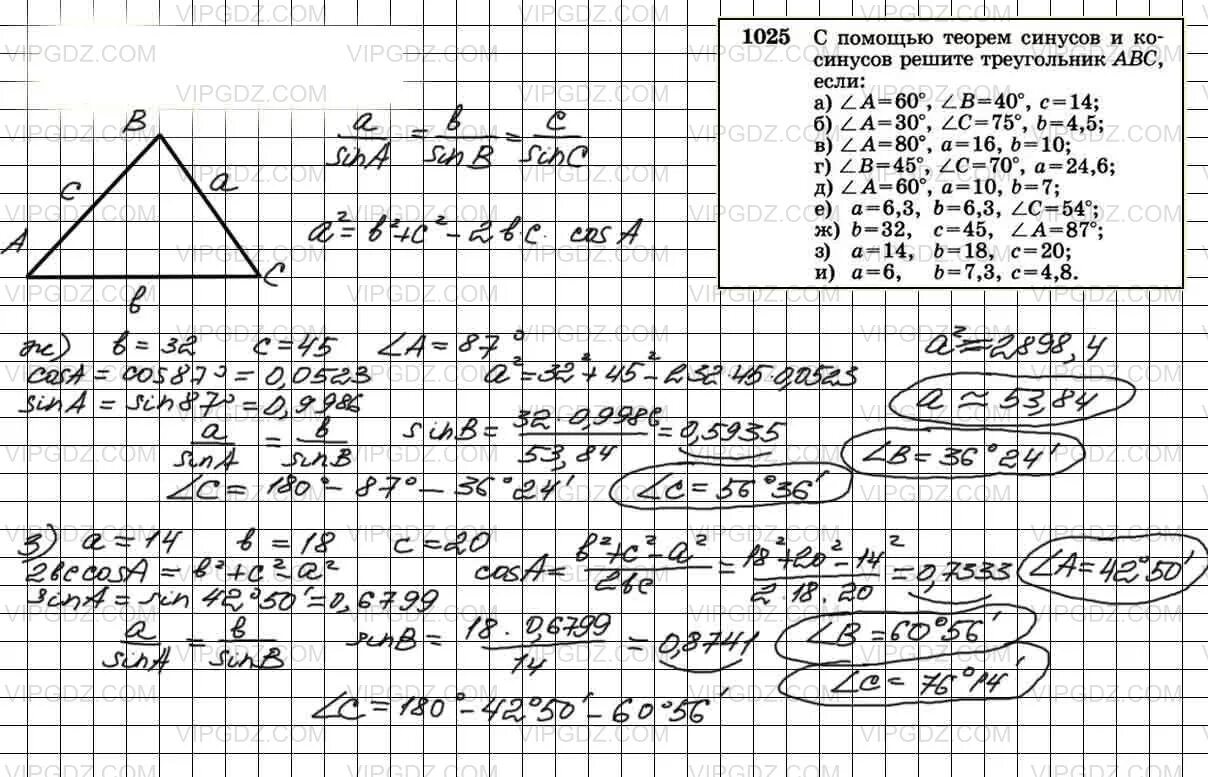 1025 С помощью теорем синусов и ко-
синусов решите треугольник ABC,
если:
а) ∠A=60°, ∠B=40°, c=14;
б) ∠A=30°, ∠C=75°, b=4,5;
в) ∠A=80°, a=16, b=10;
г) ∠B=45°, ∠C=70°, a=24,6;
д) ∠A=60°, a=10, b=7;
е) a=6,3, b=6,3, ∠C=54°;
ж) b=32, c=45, ∠A=87°;
з) a=14, b=18, c=20;
и) a=6, b=7,3, c=4,8.
B
c
a
A
C
b
a/sinA = b/sinB = c/sinC
a² = b²+c² - 2b·c· cosA
ж) b = 32 c = 45 ∠A = 87°
cosA = cos87° = 0,0523
a² = 32² + 45² - 2·32·45·0,0523
a² = 2898,4
sinA = sin87° = 0,9986
a ≈ 53,84
a/sinA = b/sinB sinB = 32·0,9986/53,84 = 0,5935
∠B = 36°24′
∠C = 180° - 87° - 36°24′ ∠C = 56°36′
з) a = 14 b = 18 c = 20
2bc cosA = b²+c²-a² cosA = b²+c²-a²/2bc = 18²+20²-14²/2·18·20 = 0,7333 ∠A = 42°50′
sinA = sin 42°50′ = 0,6799
a/sinA = b/sinB sinB = 18·0,6799/14 = 0,8741 ∠B = 60°56′
∠C = 76°14′
∠C = 180° - 42°50′ - 60°56′
VIPGDZ.COM